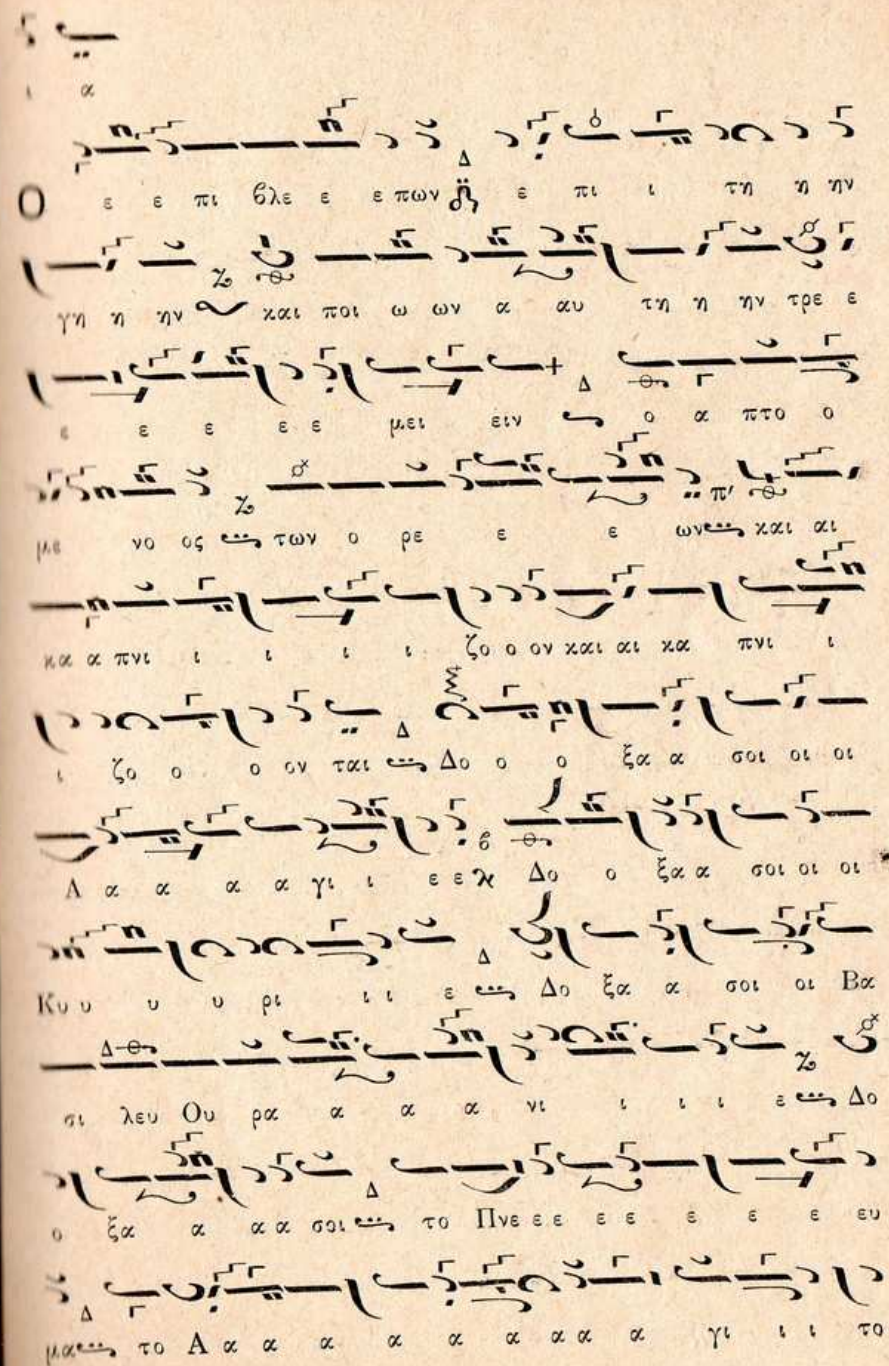 ι α
Ο ε ε πι βλε ε ε πων ε πι ι τη η ην
γη η ην και ποι ω ων α αυ τη η ην τρε ε
ε ε ε ε ε μει ειν ο α πτο ο
με νο ος των ο ρε ε ε ων και αι
κα α πνι ι ι ι ι ζο ο ον και αι κα πνι ι
ι ζο ο ο ον ται Δο ο ο ξα α σοι οι οι
Α α α α α γι ι ε ε Δο ο ξα α σοι οι οι
Κυ υ υ υ ρι ι ι ε Δο ξα α σοι οι Βα
σι λευ Ου ρα α α α νι ι ι ι ε Δο
ο ξα α α α σοι το Πνε ε ε ε ε ε ε ε ευ
μα το Α α α α α α α α α α γι ι ι το